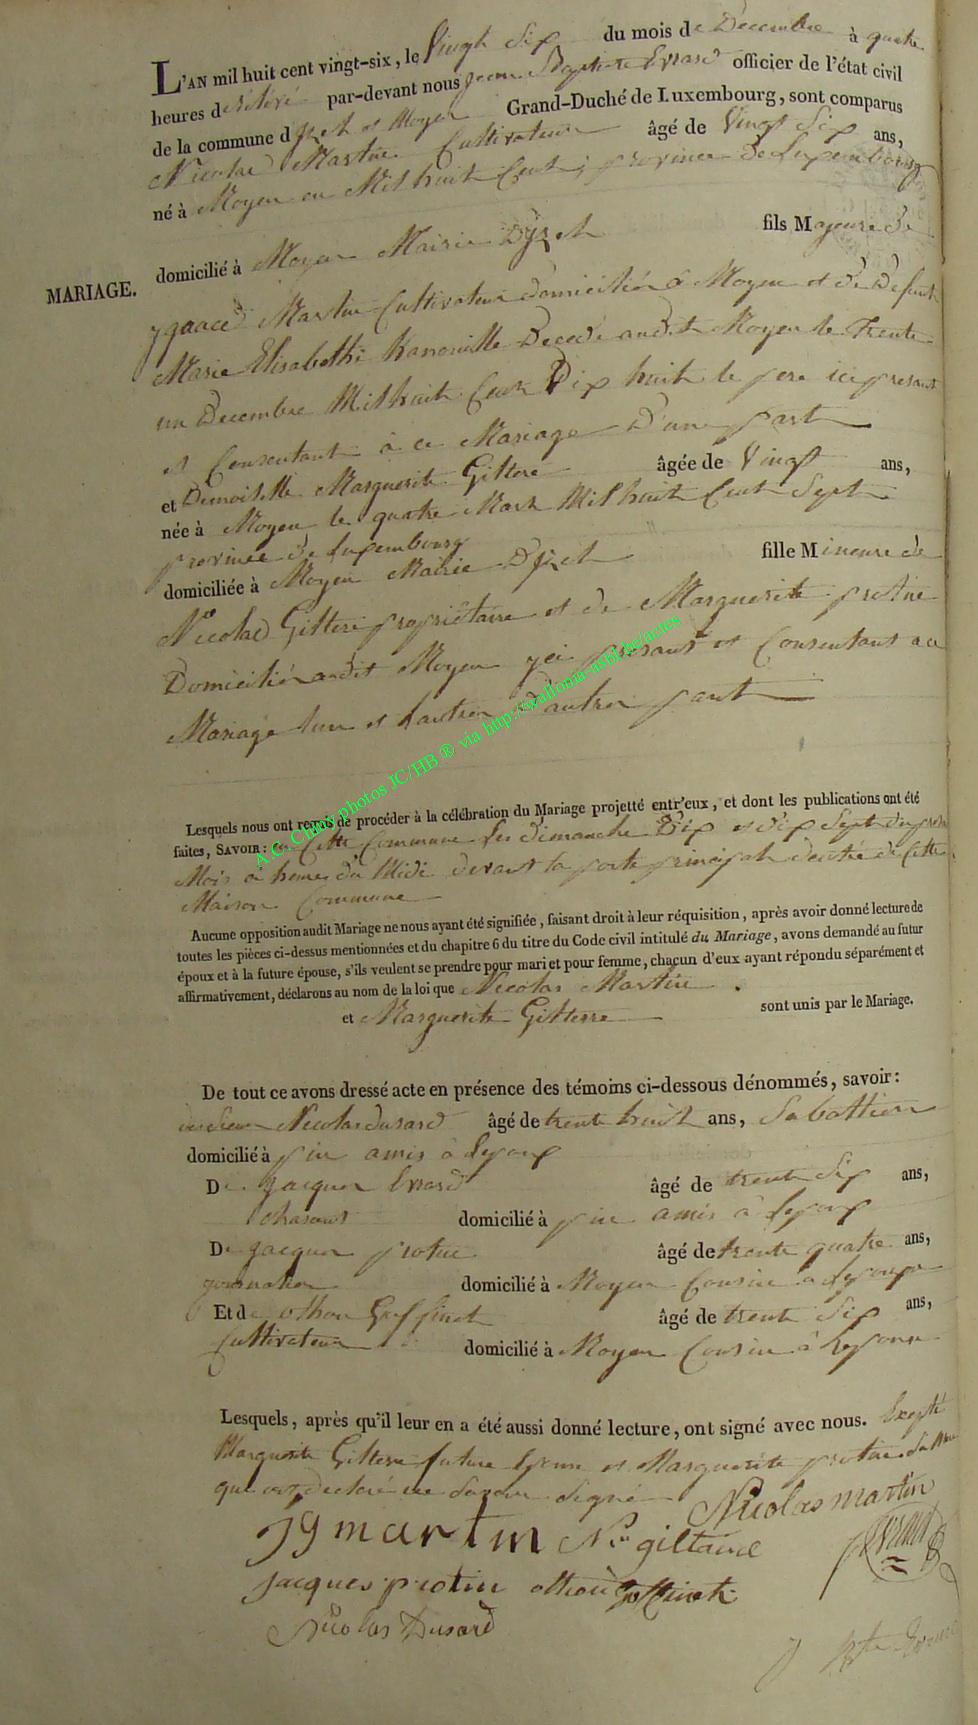 L'AN mil huit cent vingt-six, le Vingt Six du mois de Décembre à quatre
heures de rélévé par-devant nous Jean Baptiste Evrard officier de l'état civil
de la commune d'Izel et Moyen Grand-Duché de Luxembourg, sont comparus
Nicolas Martin Cultivateur âgé de Vingt Six ans,
né à Moyen en Mil huit Cent, province de Luxembourg
domicilié à Moyen Mairie D'Izel fils Majeure de
MARIAGE.
ygnace Martin Cultivateur domicilié à Moyen et de Defunt
Marie Elisabethe Decedé audit Moyen le Trente
un Decembre Mil huit Cent Dix huit le pere ici present
et Consentant à ce Mariage D'une part
et Demoiselle Marguerite Giltere âgée de Vingt ans,
née à Moyen le quatre Mars Mil huit Cent Sept
province de Luxembourg
domiciliée à Moyen Mairie D'Izel fille Mineure de
Nicolas Giltere propriétaire et de Marguerite protin
Domicilié audit Moyen yci présant et Consentant a ce
Mariage lun et lautre D'autre part
Lesquels nous ont requis de procéder à la célébration du Mariage projetté entr'eux, et dont les publications ont été
faites, SAVOIR: en Cette Commune les dimanche Dix et dix Sept du
Mois à heure du Midi devant la porte principale dentrée de Cette
Maison Commune
Aucune opposition audit Mariage ne nous ayant été signifiée, faisant droit à leur réquisition, après avoir donné lecture de
toutes les pièces ci-dessus mentionnées et du chapitre 6 du titre du Code civil intitulé du Mariage, avons demandé au futur
époux et à la future épouse, s'ils veulent se prendre pour mari et pour femme, chacun d'eux ayant répondu séparément et
affirmativement, déclarons au nom de la loi que Nicolas Martin
et Marguerite Gilterre sont unis par le Mariage.
De tout ce avons dressé acte en présence des témoins ci-dessous dénommés, savoir:
Nicolas dusard âgé de trente huit ans, Sabottier
domicilié à pin amis à Lepoux
De Jacques Evrard âgé de trente Six ans,
domicilié à pin amis à Lepoux
De Jacques protin âgé de trente quatre ans,
journalier domicilié à Moyen Cousin a Lepoux
Et de othon Goffinet âgé de trente Six ans,
Cultivateur domicilié à Moyen Cousin à Lepoux
Lesquels, après qu'il leur en a été aussi donné lecture, ont signé avec nous. Excepté
Marguerite Giltere future Epouse et Marguerite protin Sa Mere
qui ont déclaré ne Savoir Signé
Nicolas martin
Jg martin
Jacques protin
Goffinet
Nicolas Dusard
A.G. Chiny photos JC/HB ® via http://wallonia-asbl.be/actes